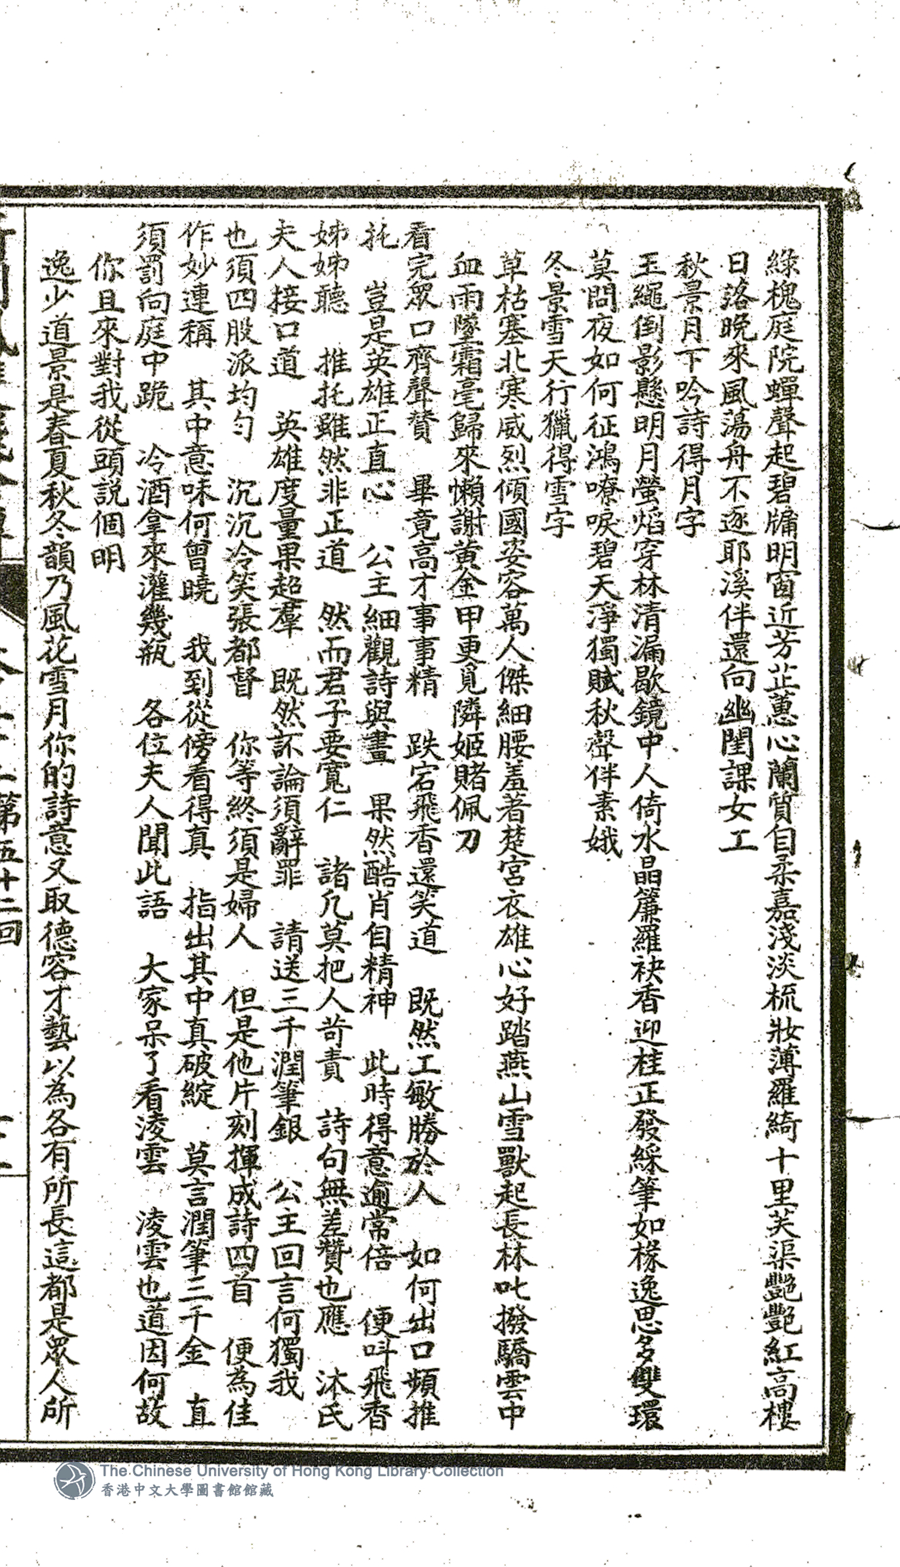 綠槐庭院蟬聲起碧牖明窗近芳芷蕙心蘭質自柔嘉淺淡梳妝薄羅綺十里芙渠艷艷紅高樓
日落晚來風蕩舟不逐耶溪伴還向幽閨課女工
秋景月下吟詩得月字
玉繩倒影懸明月螢焰穿林清漏歇鏡中人倚水晶簾羅袂香迎桂正發綵筆如椽逸思多雙環
莫問夜如何征鴻嘹唳碧天淨獨賦秋聲伴素娥
冬景雪天行獵得雪字
草枯塞北寒威烈傾國姿容萬人傑細腰羞著楚宮衣雄心好踏燕山雪獸起長林叱撥驕雲中
血雨墜霜毫歸來懶謝黃金甲更覓隣姬賭佩刀
看完眾口齊聲贊　畢竟高才事事精　跌宕飛香還笑道　既然工敏勝於人　如何出口頻推
托　豈是英雄正直心　公主細觀詩與畫　果然酷肖自精神　此時得意逾常倍　便呌飛香
姊姊聽　推托雖然非正道　然而君子要寬仁　諸凡莫把人苛責　詩句無差贊也應　沐氏
夫人接口道　英雄度量果超羣　既然訴論須辭罪　請送三千潤筆銀　公主回言何獨我
也須四股派均勻　沉沉冷笑張都督　你等終須是婦人　但是他片刻揮成詩四首　便為佳
作妙連稱　其中意味何曾曉　我到從傍看得真　指出其中真破綻　莫言潤筆三千金　直
須罰向庭中跪　冷酒拿來灌幾瓶　各位夫人聞此語　大家呆了看淩雲　淩雲也道因何故
你且來對我從頭説個明
逸少道景是春夏秋冬韻乃風花雪月你的詩意又取德容才藝以為各有所長這都是眾人所
第五十二回
The Chinese University of Hong Kong Library Collection
香港中文大學圖書館館藏